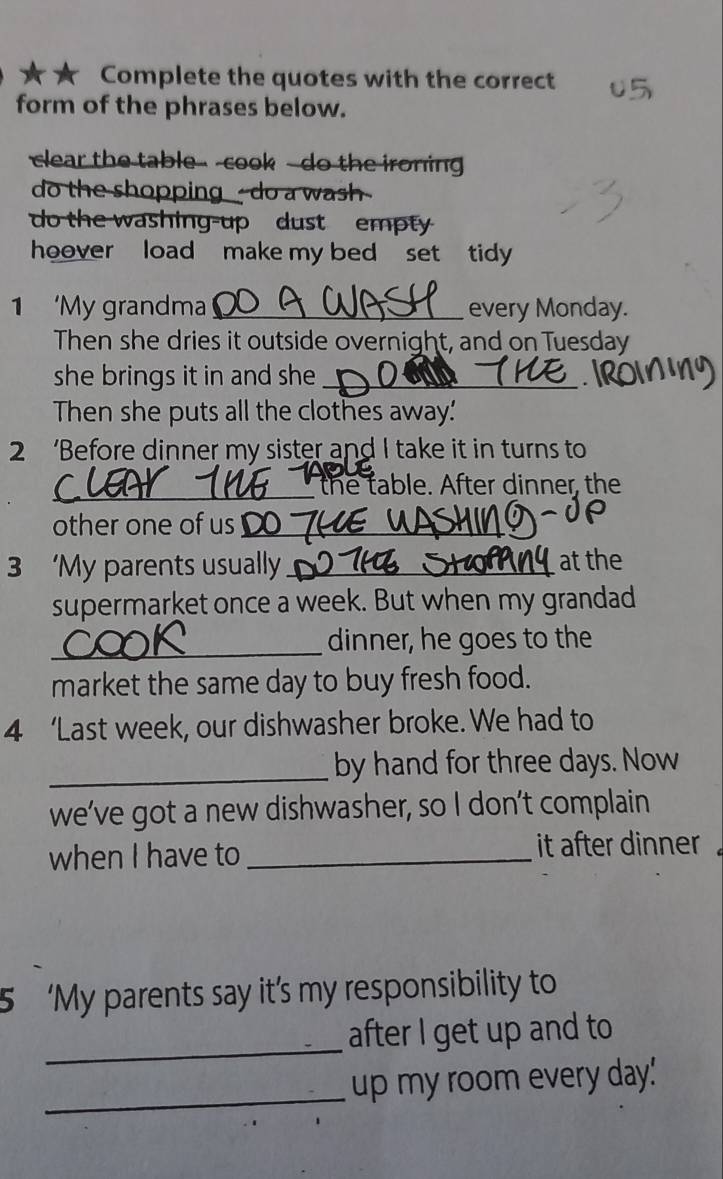 ★★ Complete the quotes with the correct U5
form of the phrases below.
clear the table cook do the ironing
do the shopping do a wash
do the washing-up dust empty
hoover load make my bed set tidy
3
1 ‘My grandma DO A WASH every Monday.
Then she dries it outside overnight, and on Tuesday
she brings it in and she DO THE IROINING.
Then she puts all the clothes away.’
2 ‘Before dinner my sister and I take it in turns to
CLEAR THE TABLE the table. After dinner, the
other one of us DO THE WASHING-UP
3 ‘My parents usually DO THE SHOPPANY at the
supermarket once a week. But when my grandad
COOK dinner, he goes to the
market the same day to buy fresh food.
4 ‘Last week, our dishwasher broke. We had to
by hand for three days. Now
we’ve got a new dishwasher, so I don’t complain
when I have to it after dinner.
5 ‘My parents say it’s my responsibility to
after I get up and to
up my room every day.’